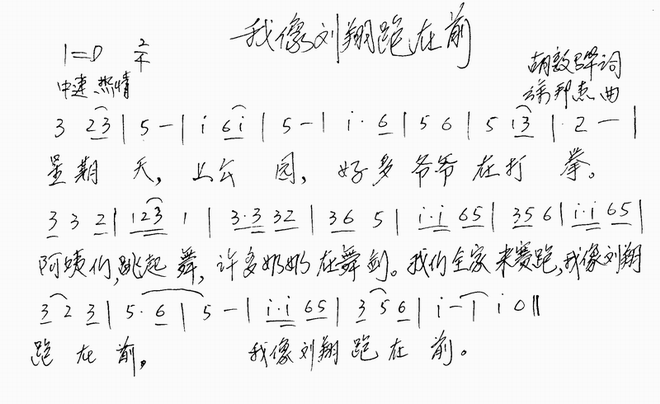 我像刘翔跑在前
1=D 2/4
中速 热情
胡敦骅词
徐邦杰曲
3 23 | 5 - | i 6i | 5 - | i· 6 | 5 6 | 5 i3 | ·2 - |
星期 天，上公 园，好多爷爷在打 拳。
3 3 2 | 123 1 | 3·3 32 | 36 5 | i·i 65 | 356 | i·i 65 |
阿姨们，跳起 舞，许多奶奶在舞剑。我们全家来赛跑，我像刘翔
3 2 3 | 5·6 | 5 - | i·i 65 | 3 5 6 | i - | i 0 ||
跑 在 前， 我像刘翔 跑 在 前。